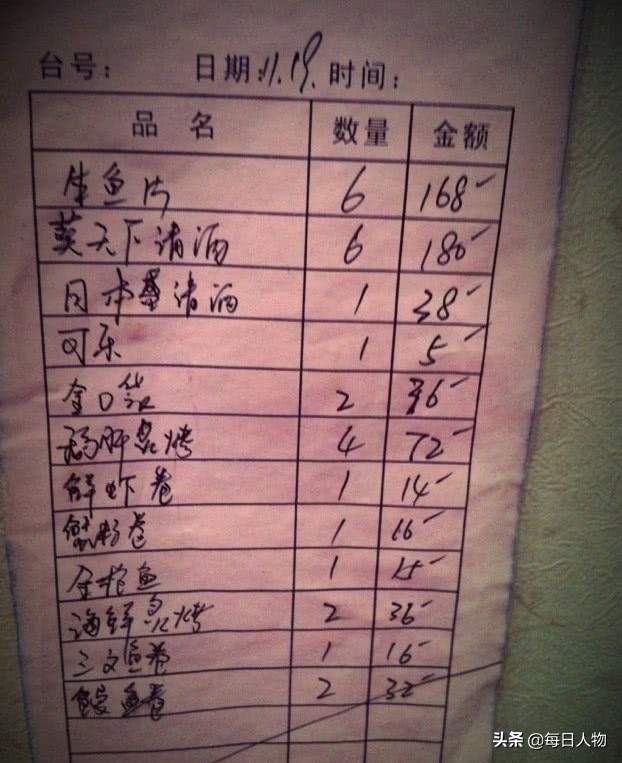 台号： 日期：11.19. 时间：
品名 数量 金额
生鱼片 6 168-
英天下清酒 6 180-
日本清酒 1 38-
可乐 1 5-
金口袋 2 36-
鹅肝炙烤 4 72-
鲜虾卷 1 14-
蟹籽卷 1 16-
金枪鱼 1 15-
海鲜炙烤 2 36-
三文鱼卷 1 16-
鳗鱼卷 2 32-
头条 @每日人物